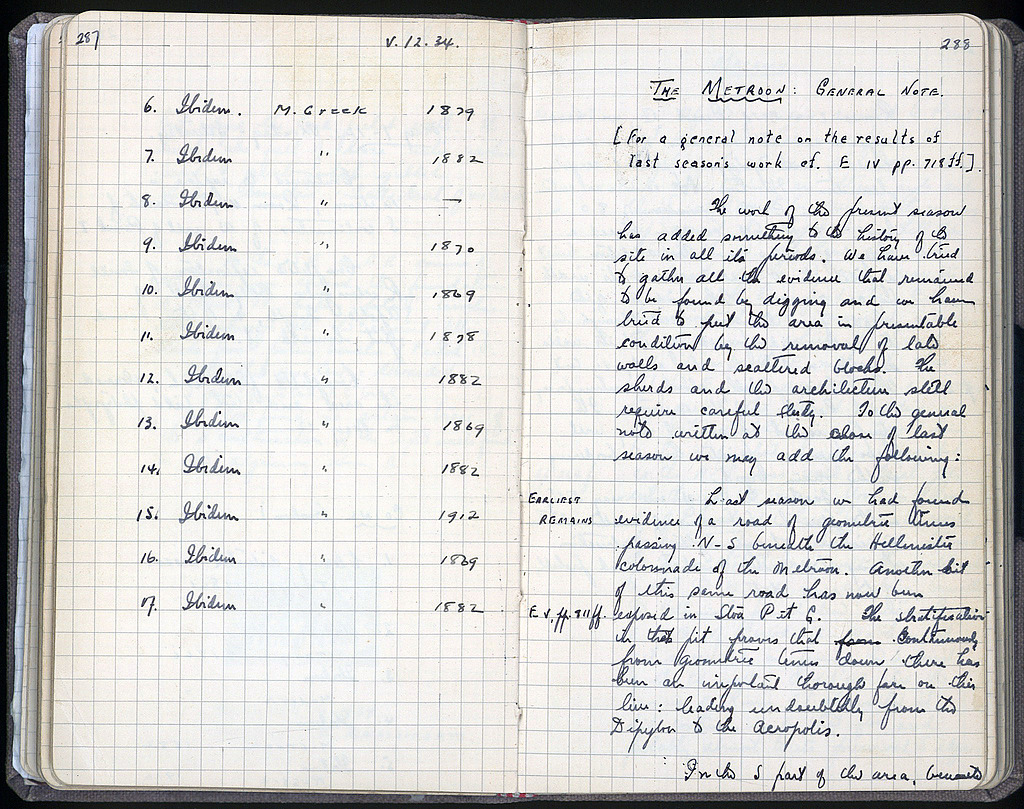 287
V.12.34.
6. Ibidem. M. Greek 1879
7. Ibidem " 1882
8. Ibidem " —
9. Ibidem " 1870
10. Ibidem " 1869
11. Ibidem " 1878
12. Ibidem " 1882
13. Ibidem " 1869
14. Ibidem " 1882
15. Ibidem " 1912
16. Ibidem " 1869
17. Ibidem " 1882
288
THE METROON: GENERAL NOTE.
[For a general note on the results of
last season's work cf. E IV pp. 718ff.].
The work of the present season
has added something to the history of the
site in all its periods. We have tried
to gather all the evidence that remained
to be found by digging and we have
tried to put the area in presentable
condition by the removal of late
walls and scattered blocks. The
sherds and the architecture still
require careful study. To the general
note written at the close of last
season we may add the following:
EARLIEST REMAINS
Last season we had found
evidence of a road of geometric times
passing N-S beneath the Hellenistic
colonnade of the Metroon. Another bit
of this same road has now been
E V, pp. 811 ff.
exposed in Stoa Pit G. The stratification
in that pit proves that from continuously
from geometric times down there has
been an important thoroughfare on this
line: leading undoubtedly from the
Dipylon to the Acropolis.
In the S part of the area, beneath